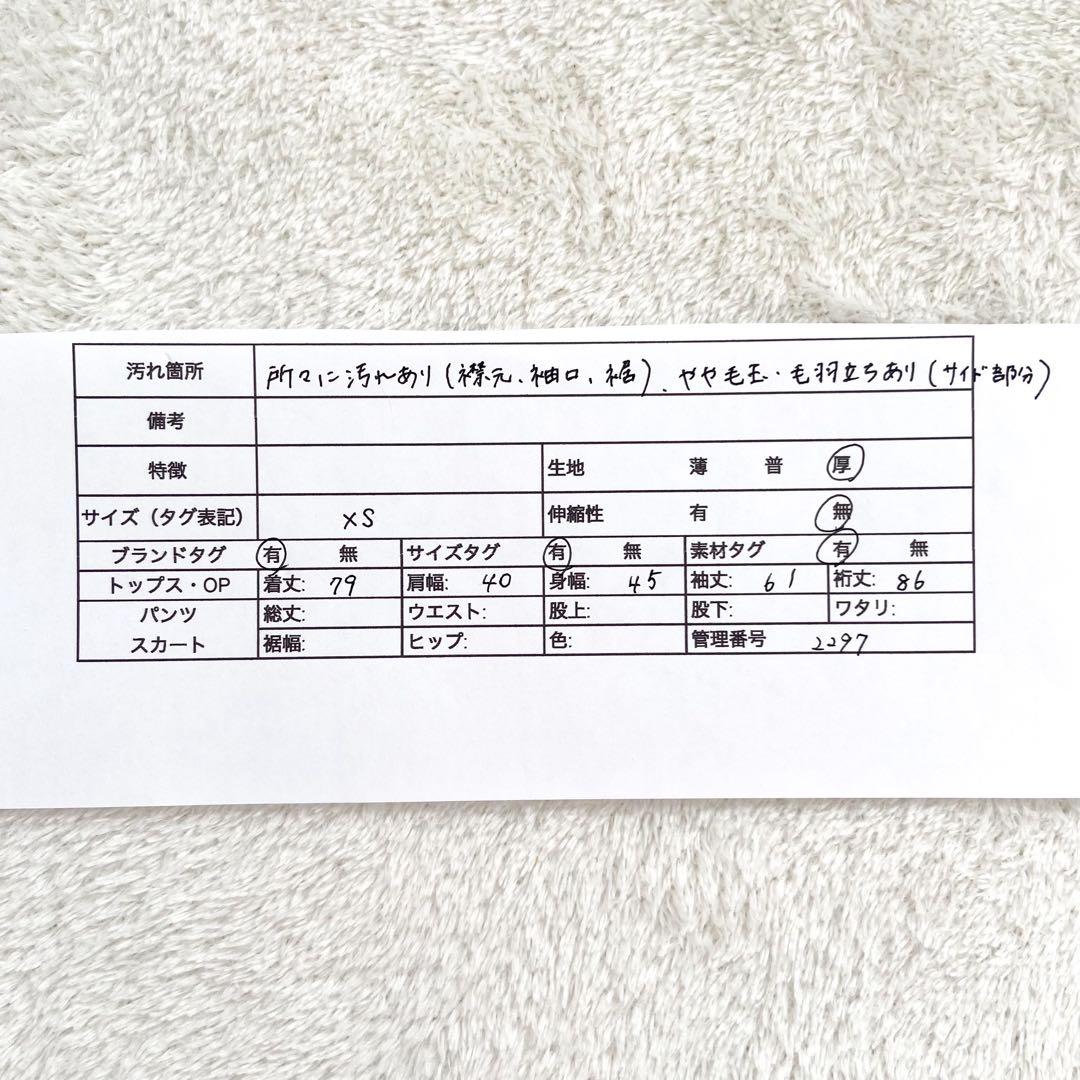 汚れ箇所 所々に汚れあり(襟元、袖口、裾)、やや毛玉・毛羽立ちあり(サイド部分)
備考
特徴 生地 薄 普 厚
サイズ（タグ表記） XS 伸縮性 有 無
ブランドタグ 有 無 サイズタグ 有 無 素材タグ 有 無
トップス・OP 着丈: 79 肩幅: 40 身幅: 45 袖丈: 61 裄丈: 86
パンツ 総丈: ウエスト: 股上: 股下: ワタリ:
スカート 裾幅: ヒップ: 色: 管理番号 2297